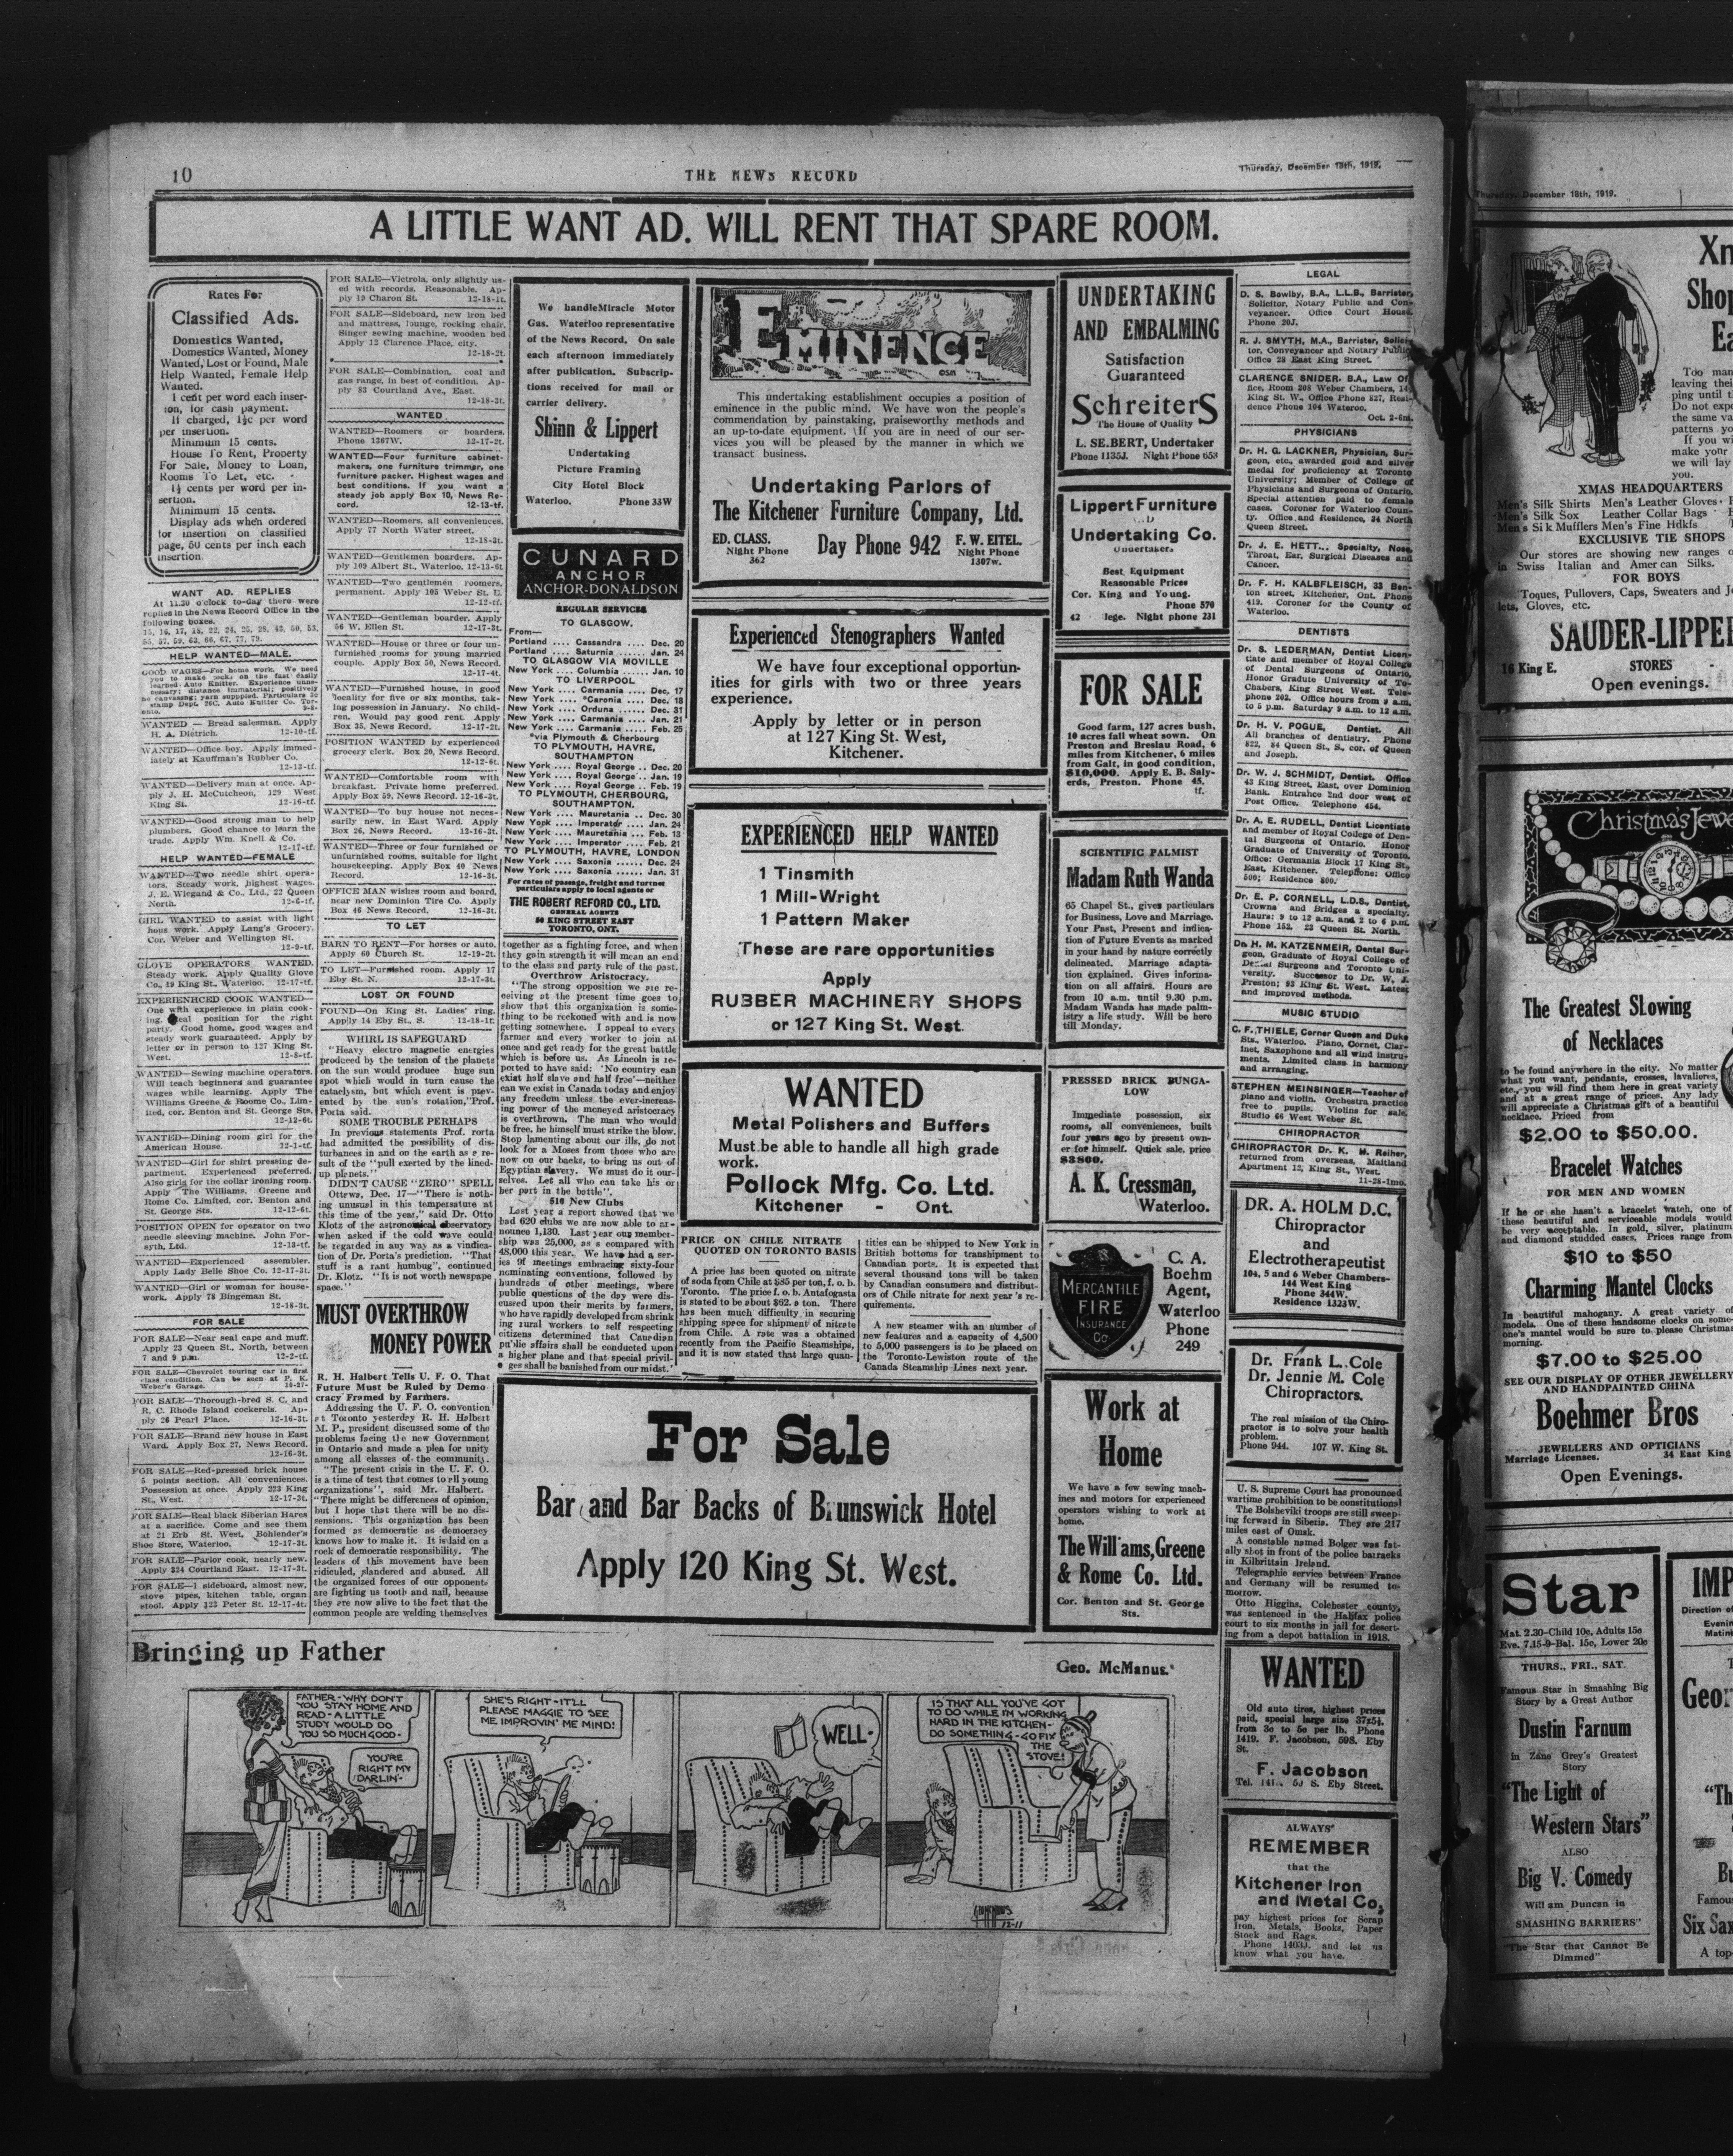 10
THE NEWS RECORD
Thursday, December 18th, 1919.
A LITTLE WANT AD. WILL RENT THAT SPARE ROOM.
Rates For
Classified Ads.
Domestics Wanted,
Domestics Wanted, Money
Wanted, Lost or Found, Male
Help Wanted, Female Help
Wanted.
1 cent per word each inser-
tion, for cash payment.
If charged, 1½c per word
per insertion.
Minimum 15 cents.
House To Rent, Property
For Sale, Money to Loan,
Rooms To Let, etc.
1½ cents per word per in-
sertion.
Minimum 15 cents.
Display ads when ordered
for insertion on classified
page, 50 cents per inch each
insertion.
WANT AD. REPLIES
At 11.30 o'clock to-day there were
replies in the News Record Office in the
following boxes.
HELP WANTED—MALE.
WANTED — Bread salesman. Apply
H. A. Dietrich. 12-10-tf.
WANTED—Office boy. Apply immed-
iately at Kauffman's Rubber Co.
12-13-tf.
WANTED—Delivery man at once. Ap-
ply J. H. McCutcheon, 129 West
King St. 12-16-tf.
WANTED—Good strong man to help
plumbers. Good chance to learn the
trade. Apply Wm. Knell & Co.
12-17-tf.
HELP WANTED—FEMALE
WANTED—Two needle shirt opera-
tors. Steady work, highest wages.
J. E. Wiegand & Co., Ltd., 22 Queen
North. 12-6-tf.
GIRL WANTED to assist with light
hous work. Apply Lang's Grocery,
Cor. Weber and Wellington St.
12-9-tf.
GLOVE OPERATORS WANTED.
Steady work. Apply Quality Glove
Co., 19 King St., Waterloo. 12-17-tf.
EXPERIENHCED COOK WANTED—
One with experience in plain cook-
ing. position for the right
party. Good home, good wages and
steady work guaranteed. Apply by
letter or in person to 127 King St.
West. 12-8-tf.
WANTED—Sewing machine operators.
Will teach beginners and guarantee
wages while learning. Apply The
Williams Greene & Roome Co., Lim-
ited, cor. Benton and St. George Sts.
12-12-6t.
WANTED—Dining room girl for the
American House. 12-1-tf.
WANTED—Girl for shirt pressing de-
partment. Experienced preferred.
Also girls for the collar ironing room.
Apply The Williams, Greene and
Rome Co. Limited, cor. Benton and
St. George Sts. 12-12-6t.
POSITION OPEN for operator on two
needle sleeving machine. John For-
syth, Ltd. 12-13-tf.
WANTED—Experienced assembler.
Apply Lady Belle Shoe Co. 12-17-3t.
WANTED—Girl or woman for house-
work. Apply 78 Bingeman St.
12-18-3t.
FOR SALE
FOR SALE—Near seal cape and muff.
Apply 23 Queen St., North, between
7 and 9 p.m. 12-2-tf.
FOR SALE—Chevrolet touring car in first
class condition. Can be seen at P. K.
Weber's Garage. 10-27-
FOR SALE—Thorough-bred S. C. and
R. C. Rhode Island cockerels. Ap-
ply 26 Pearl Place. 12-16-3t.
FOR SALE—Brand new house in East
Ward. Apply Box 27, News Record.
12-16-3t.
FOR SALE—Red-pressed brick house
5 points section. All conveniences.
Possession at once. Apply 223 King
St., West. 12-17-3t.
FOR SALE—Real black Siberian Hares
at a sacrifice. Come and see them
at 21 Erb St. West. Bohlender's
Shoe Store, Waterloo. 12-17-3t.
FOR SALE—Parlor cook, nearly new.
Apply 324 Courtland East. 12-17-3t.
FOR SALE—1 sideboard, almost new,
stove pipes, kitchen table, organ
stool. Apply 123 Peter St. 12-17-4t.
FOR SALE—Victrola, only slightly us-
ed with records. Reasonable. Ap-
ply 19 Charon St. 12-18-1t.
FOR SALE—Sideboard, new iron bed
and mattress, lounge, rocking chair,
Singer sewing machine, wooden bed
Apply 12 Clarence Place, city.
12-18-2t.
FOR SALE—Combination, coal and
gas range, in best of condition. Ap-
ply 83 Courtland Ave., East.
12-18-3t.
WANTED
WANTED—Roomers or boarders.
Phone 1367W. 12-17-2t.
WANTED—Four furniture cabinet-
makers, one furniture trimmer, one
furniture packer. Highest wages and
best conditions. If you want a
steady job apply Box 10, News Re-
cord. 12-13-tf.
WANTED—Roomers, all conveniences.
Apply 77 North Water street.
12-18-2t.
WANTED—Gentlemen boarders. Ap-
ply 109 Albert St., Waterloo. 12-13-6t
WANTED—Two gentlemen roomers,
permanent. Apply 105 Weber St. E.
12-12-tf.
WANTED—Gentleman boarder. Apply
56 W. Ellen St. 12-17-3t.
WANTED—House or three or four un-
furnished rooms for young married
couple. Apply Box 50, News Record.
12-17-4t.
WANTED—Furnished house, in good
locality for five or six months, tak-
ing possession in January. No child-
ren. Would pay good rent. Apply
Box 35, News Record. 12-17-2t.
POSITION WANTED by experienced
grocery clerk. Box 20, News Record.
12-12-6t.
WANTED—Comfortable room with
breakfast. Private home preferred.
Apply Box 59, News Record. 12-16-3t.
WANTED—To buy house not neces-
sarily new, in East Ward. Apply
Box 26, News Record. 12-16-3t.
WANTED—Three or four furnished or
unfurnished rooms, suitable for light
housekeeping. Apply Box 40 News
Record. 12-16-3t.
OFFICE MAN wishes room and board,
near new Dominion Tire Co. Apply
Box 46 News Record. 12-16-3t.
TO LET
BARN TO RENT—For horses or auto.
Apply 60 Church St. 12-19-2t.
TO LET—Furnished room. Apply 17
Eby St. N. 12-17-3t.
LOST OR FOUND
FOUND—On King St. Ladies' ring.
Apply 14 Eby St., S. 12-18-1t
WHIRL IS SAFEGUARD
"Heavy electro magnetic energies
produced by the tension of the planets
on the sun would produce huge sun
spot which would in turn cause the
cataclysm, but which event is prev-
ented by the sun's rotation,"Prof.
Porta said.
SOME TROUBLE PERHAPS
In previous statements Prof. rorta
had admitted the possibility of dis-
turbances in and on the earth as a re-
sult of the "pull exerted by the lined-
up planets."
DIDN'T CAUSE "ZERO" SPELL
Ottawa, Dec. 17—"There is noth-
ing unusual in this tempersature at
this time of the year," said Dr. Otto
Klotz of the astronomical observatory
when asked if the cold wave could
be regarded in any way as a vindica-
tion of Dr. Porta's prediction. "That
stuff is a rant humbug", continued
Dr. Klotz. "It is not worth newspape
space."
MUST OVERTHROW
MONEY POWER
R. H. Halbert Tells U. F. O. That
Future Must be Ruled by Demo
cracy Framed by Farmers.
Addressing the U. F. O. convention
at Toronto yesterday R. H. Halbert
M. P., president discussed some of the
problems facing the new Government
in Ontario and made a plea for unity
among all classes of the community.
"The present crisis in the U. F. O.
is a time of test that comes to all young
organizations", said Mr. Halbert.
"There might be differences of opinion,
but I hope that there will be no dis-
sensions. This organization has been
formed as democratic as democracy
knows how to make it. It is laid on a
rock of democratic responsibility. The
leaders of this movement have been
ridiculed, slandered and abused. All
the organized forces of our opponents
are fighting us tooth and nail, because
they are now alive to the fact that the
common people are welding themselves
We handleMiracle Motor
Gas. Waterloo representative
of the News Record. On sale
each afternoon immediately
after publication. Subscrip-
tions received for mail or
carrier delivery.
Shinn & Lippert
Undertaking
Picture Framing
City Hotel Block
Waterloo. Phone 33W
CUNARD
ANCHOR
ANCHOR-DONALDSON
REGULAR SERVICES
TO GLASGOW.
From—
Portland .... Cassandra .... Dec. 20
Portland .... Saturnia .... Jan. 24
TO GLASGOW VIA MOVILLE
New York .... Columbia ...... Jan. 10
TO LIVERPOOL
New York .... Carmania .... Dec. 17
New York .... *Caronia .... Dec. 18
New York .... Orduna ...... Dec. 31
New York .... Carmania .... Jan. 21
New York .... Carmania .... Feb. 25
*via Plymouth & Cherbourg
TO PLYMOUTH, HAVRE,
SOUTHAMPTON
New York .... Royal George .. Dec. 20
New York .... Royal George .. Jan. 19
New York .... Royal George .. Feb. 19
TO PLYMOUTH, CHERBOURG,
SOUTHAMPTON.
New York .... Mauretania .. Dec. 30
New York .... Imperator .... Jan. 24
New York .... Mauretania .... Feb. 13
New York .... Imperator .... Feb. 21
TO PLYMOUTH, HAVRE, LONDON
New York .... Saxonia ...... Dec. 24
New York .... Saxonia ...... Jan. 31
For rates of passage, freight and further
particulars apply to local agents or
THE ROBERT REFORD CO., LTD.
GENERAL AGENTS
50 KING STREET EAST
TORONTO, ONT.
together as a fighting force, and when
they gain strength it will mean an end
to the class and party rule of the past.
Overthrow Aristocracy.
"The strong opposition we are re-
ceiving at the present time goes to
show that this organization is some-
thing to be reckoned with and is now
getting somewhere. I appeal to every
farmer and every worker to join at
once and get ready for the great battle
which is before us. As Lincoln is re-
ported to have said: 'No country can
exist half slave and half free'—neither
can we exist in Canada today and enjoy
any freedom unless the ever-increas-
ing power of the moneyed aristocracy
is overthrown. The man who would
be free, he himself must strike the blow.
Stop lamenting about our ills, do not
look for a Moses from those who are
now on our backs, to bring us out of
Egyptian slavery. We must do it our-
selves. Let all who can take his or
her part in the battle".
510 New Clubs
Last year a report showed that we
had 620 clubs we are now able to an-
nounce 1,130. Last year our member-
ship was 25,000, as s compared with
48,000 this year. We have had a ser-
ies of meetings embracing sixty-four
nominating conventions, followed by
hundreds of other meetings, where
public questions of the day were dis-
cussed upon their merits by farmers,
who have rapidly developed from shrink
ing rural workers to self respecting
citizens determined that Canadian
public affairs shall be conducted upon
a higher plane and that special privil-
ges shall be banished from our midst."
EMINENCE
This undertaking establishment occupies a position of
eminence in the public mind. We have won the people's
commendation by painstaking, praiseworthy methods and
an up-to-date equipment. If you are in need of our ser-
vices you will be pleased by the manner in which we
transact business.
Undertaking Parlors of
The Kitchener Furniture Company, Ltd.
ED. CLASS.
Night Phone
362
Day Phone 942
F. W. EITEL.
Night Phone
1307w.
Experienced Stenographers Wanted
We have four exceptional opportun-
ities for girls with two or three years
experience.
Apply by letter or in person
at 127 King St. West,
Kitchener.
EXPERIENCED HELP WANTED
1 Tinsmith
1 Mill-Wright
1 Pattern Maker
These are rare opportunities
Apply
RUBBER MACHINERY SHOPS
or 127 King St. West.
WANTED
Metal Polishers and Buffers
Must be able to handle all high grade
work.
Pollock Mfg. Co. Ltd.
Kitchener - Ont.
PRICE ON CHILE NITRATE
QUOTED ON TORONTO BASIS
A price has been quoted on nitrate
of soda from Chile at $85 per ton, f. o. b.
Toronto. The price f. o. b. Antafogasta
is stated to be about $62. a ton. There
has been much difficulty in securing
shipping space for shipment of nitrate
from Chile. A rate was a obtained
recently from the Pacific Steamships,
and it is now stated that large quan-
tities can be shipped to New York in
British bottoms for transhipment to
Canadian ports. It is expected that
several thousand tons will be taken
by Canadian consumers and distribut-
ors of Chile nitrate for next year's re-
quirements.
A new steamer with an number of
new features and a capacity of 4,500
to 5,000 passengers is to be placed on
the Toronto-Lewiston route of the
Canada Steamship Lines next year.
For Sale
Bar and Bar Backs of Brunswick Hotel
Apply 120 King St. West.
UNDERTAKING
AND EMBALMING
Satisfaction
Guaranteed
SchreiterS
The House of Quality
L. SE.BERT, Undertaker
Phone 1135J. Night Phone 653
Lippert Furniture
Undertaking Co.
Undertakers
Best Equipment
Reasonable Prices
Cor. King and Young.
Phone 570
42 lege. Night phone 231
FOR SALE
Good farm, 127 acres bush,
10 acres fall wheat sown. On
Preston and Breslau Road, 6
miles from Kitchener, 6 miles
from Galt, in good condition,
$10,000. Apply E. B. Saly-
erds, Preston. Phone 45.
tf.
SCIENTIFIC PALMIST
Madam Ruth Wanda
65 Chapel St., gives particulars
for Business, Love and Marriage.
Your Past, Present and indica-
tion of Future Events as marked
in your hand by nature correctly
delineated. Marriage adapta-
tion explained. Gives informa-
tion on all affairs. Hours are
from 10 a.m. until 9.30 p.m.
Madam Wanda has made palm-
istry a life study. Will be here
till Monday.
PRESSED BRICK BUNGA-
LOW
Immediate possession, six
rooms, all conveniences, built
four years ago by present own-
er for himself. Quick sale, price
$3800.
A. K. Cressman,
Waterloo.
MERCANTILE
FIRE
INSURANCE
Co.
C. A.
Boehm
Agent,
Waterloo
Phone
249
Work at
Home
We have a few sewing mach-
ines and motors for experienced
operators wishing to work at
home.
The Williams, Greene
& Rome Co. Ltd.
Cor. Benton and St. George
Sts.
LEGAL
D. S. Bowlby, B.A., L.L.B., Barrister,
Solicitor, Notary Public and Con-
veyancer. Office Court House.
Phone 20J.
R. J. SMYTH, M.A., Barrister, Solici-
tor, Conveyancer and Notary Public
Office 28 East King Street.
CLARENCE SNIDER, B.A., Law Of-
fice, Room 208 Weber Chambers, 14
King St. W., Office Phone 827, Resi-
dence Phone 104 Wateroo.
Oct. 2-6m.
PHYSICIANS
Dr. H. G. LACKNER, Physician, Sur-
geon, etc., awarded gold and silver
medal for proficiency at Toronto
University: Member of College of
Physicians and Surgeons of Ontario.
Special attention paid to female
cases. Coroner for Waterloo Coun-
ty. Office and Residence, 34 North
Queen Street.
Dr. J. E. HETT.., Specialty, Nose,
Throat, Ear, Surgical Diseases and
Cancer.
Dr. F. H. KALBFLEISCH, 33 Ben-
ton street, Kitchener, Ont. Phone
419. Coroner for the County of
Waterloo.
DENTISTS
Dr. S. LEDERMAN, Dentist Licen-
tiate and member of Royal College
of Dental Surgeons of Ontario.
Honor Gradute University of To-
Chabers, King Street West. Tele-
phone 202. Office hours from 9 a.m.
to 5 p.m. Saturday 9 a.m. to 12 a.m.
Dr. H. V. POGUE, Dentist. All
All branches of dentistry. Phone
822, 84 Queen St., S., cor. of Queen
and Joseph.
Dr. W. J. SCHMIDT, Dentist. Office
43 King Street, East, over Dominion
Bank. Entrance 2nd door west of
Post Office. Telephone 454.
Dr. A. E. RUDELL, Dentist Licentiate
and member of Royal College of Den-
tal Surgeons of Ontario. Honor
Graduate of University of Toronto.
Office: Germania Block 17 King St.,
East, Kitchener. Telepftone: Office
500; Residence 800.
Dr. E. P. CORNELL, L.D.S., Dentist.
Crowns and Bridges a specialty.
Haurs: 9 to 12 a.m. and 2 to 6 p.m.
Phone 152. 23 Queen St. North.
Dr. H. M. KATZENMEIR, Dental Sur-
geon, Graduate of Royal College of
Dental Surgeons and Toronto Uni-
versity. Successor to Dr. W. J.
Preston; 93 King St. West. Latest
and improved methods.
MUSIC STUDIO
C. F. THIELE, Corner Queen and Duke
Sts., Waterloo. Piano, Cornet, Clar-
inet, Saxophone and all wind instru-
ments. Limited class in harmony
and arranging.
STEPHEN MEINSINGER—Teacher of
piano and violin. Orchestra practice
free to pupils. Violins for sale.
Studio 46 West Weber St.
CHIROPRACTOR
CHIROPRACTOR Dr. K. M. Reiher,
returned from overseas, Maitland
Apartment 12, King St., West.
11-28-1mo.
DR. A. HOLM D.C.
Chiropractor
and
Electrotherapeutist
104, 5 and 6 Weber Chambers-
144 West King
Phone 344W.
Residence 1323W.
Dr. Frank L. Cole
Dr. Jennie M. Cole
Chiropractors.
The real mission of the Chiro-
practor is to solve your health
problem.
Phone 944. 107 W. King St.
U. S. Supreme Court has pronounced
wartime prohibition to be constitutional
The Bolsheviki troops are still sweep-
ing forward in Siberia. They are 217
miles east of Omsk.
A constable named Bolger was fat-
ally shot in front of the police barracks
in Kilbrittain Ireland.
Telegraphic service between France
and Germany will be resumed to-
morrow.
Otto Higgins, Colchester county,
was sentenced in the Halifax police
court to six months in jail for desert-
ing from a depot battalion in 1918.
WANTED
Old auto tires, highest prices
paid, special large size 37x5½,
from 3c to 5c per lb. Phone
1419. F. Jacobson, 59S. Eby
St.
F. Jacobson
Tel. 141 , 59 S. Eby Street.
ALWAYS
REMEMBER
that the
Kitchener Iron
and Metal Co,
pay highest prices for Scrap
Iron, Metals, Books, Paper
Stock and Rags.
Phone 1403J. and let us
know what you have.
Bringing up Father
Geo. McManus.
FATHER-WHY DON'T
YOU STAY HOME AND
READ-A LITTLE
STUDY WOULD DO
YOU SO MUCH GOOD-
YOU'RE
RIGHT MY
DARLIN'-
SHE'S RIGHT-IT'LL
PLEASE MAGGIE TO SEE
ME IMPROVIN' ME MIND!
WELL-
IS THAT ALL YOU'VE GOT
TO DO WHILE I'M WORKING
HARD IN THE KITCHEN-
DO SOMETHING-GO FIX
THE
STOVE!
12-11
Thursday, December 18th, 1919.
Too man
leaving thei
ping until t
Do not expe
the same va
patterns yo
If you wi
make your
we will lay
you.
XMAS HEADQUARTERS
Men's Silk Shirts Men's Leather Gloves
Men's Silk Sox Leather Collar Bags
Men's Silk Mufflers Men's Fine Hdkfs
EXCLUSIVE TIE SHOPS
Our stores are showing new ranges o
in Swiss Italian and American Silks.
FOR BOYS
Toques, Pullovers, Caps, Sweaters and Je
lets, Gloves, etc.
SAUDER-LIPPE
16 King E. STORES
Open evenings.
Christmas Jewe
The Greatest Slowing
of Necklaces
to be found anywhere in the city. No matter
what you want, pendants, crosses, lavalieres,
etc., you will find them here in great variety
and at a great range of prices. Any lady
will appreciate a Christmas gift of a beautiful
necklace. Priced from
$2.00 to $50.00.
Bracelet Watches
FOR MEN AND WOMEN
If he or she hasn't a bracelet watch, one of
these beautiful and serviceable models would
be very acceptable. In gold, silver, platinum
and diamond studded cases. Prices range from
$10 to $50
Charming Mantel Clocks
In beautiful mahogany. A great variety of
models. One of these handsome clocks on some-
one's mantel would be sure to please Christmas
morning.
$7.00 to $25.00
SEE OUR DISPLAY OF OTHER JEWELLERY
AND HANDPAINTED CHINA
Boehmer Bros
JEWELLERS AND OPTICIANS
Marriage Licenses. 34 East King
Open Evenings.
Star
Mat. 2.30-Child 10c, Adults 15c
Eve. 7.15-9-Bal. 15c, Lower 20c
THURS., FRI., SAT.
Famous Star in Smashing Big
Story by a Great Author
Dustin Farnum
in Zane Grey's Greatest
Story
"The Light of
Western Stars"
ALSO
Big V. Comedy
William Duncan in
SMASHING BARRIERS"
"The Star that Cannot Be
Dimmed"
IMP
Direction of
Evenin
Matin
Geor
"Th
Bu
Famou
Six Sax
A top